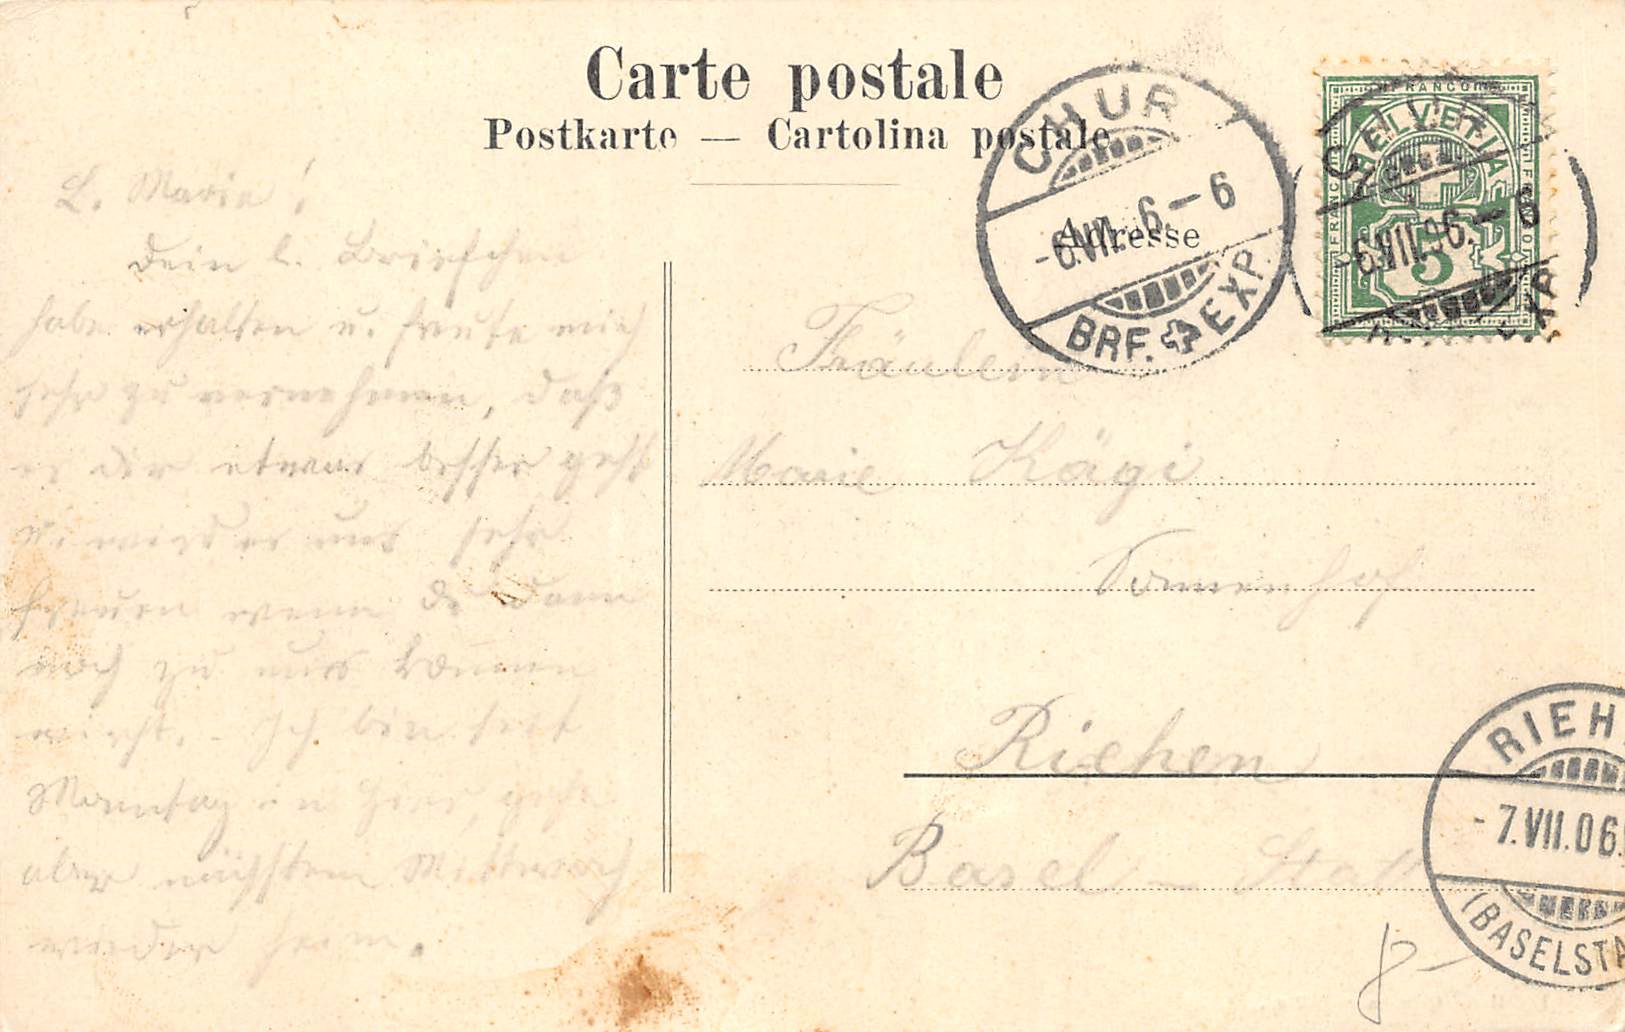 Carte postale
Postkarte — Cartolina postale
Adresse
CHUR
-6.VII.06.-6
BRF. EXP.
FRANCO
HELVETIA
FRANCO
FRANCO
5
CHUR
-6.VII.06.-6
EXP.
L. Marie!
Dein l. Briefchen
habe erhalten u. freute mich
sehr zu vernehmen, daß
es dir etwas besser geht
wird es uns sehr
freuen wenn du dann
noch zu uns kommen
wirst. - Ich bin seit
Monntag in gehe
aber nächsten Mittwoch
wieder heim.
Fräulein
Marie Kägi
Sonnenhof
Riehen
Basel - Statt
RIEH
-7.VII.06.
(BASELSTA
8-